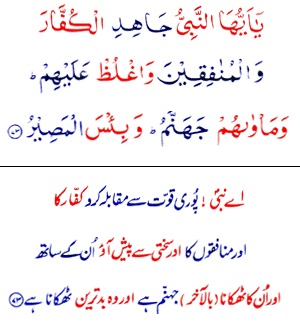 يَاَيُّهَا النَّبِىُّ جَاهِدِ الْكُفَّارَ
وَالْمُنٰفِقِيْنَ وَاغْلُظْ عَلَيْهِمْ ؕ
وَمَاْوٰىهُمْ جَهَنَّمُ ؕ وَبِئْسَ الْمَصِيْرُ ﴿۷۳﴾
اے نبیؐ ! پُوری قوّت سے مقابلہ کرو کفّار کا
اور منافقوں کا اور سختی سے پیش آؤ اُن کے ساتھ
اور اُن کا ٹھکانا (بالآخر) جہنّم ہے اور وہ بدترین ٹھکانا ہے ﴿۷۳﴾